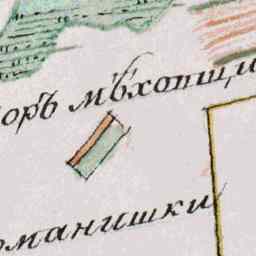 оръ мѣхопщи
оманишки